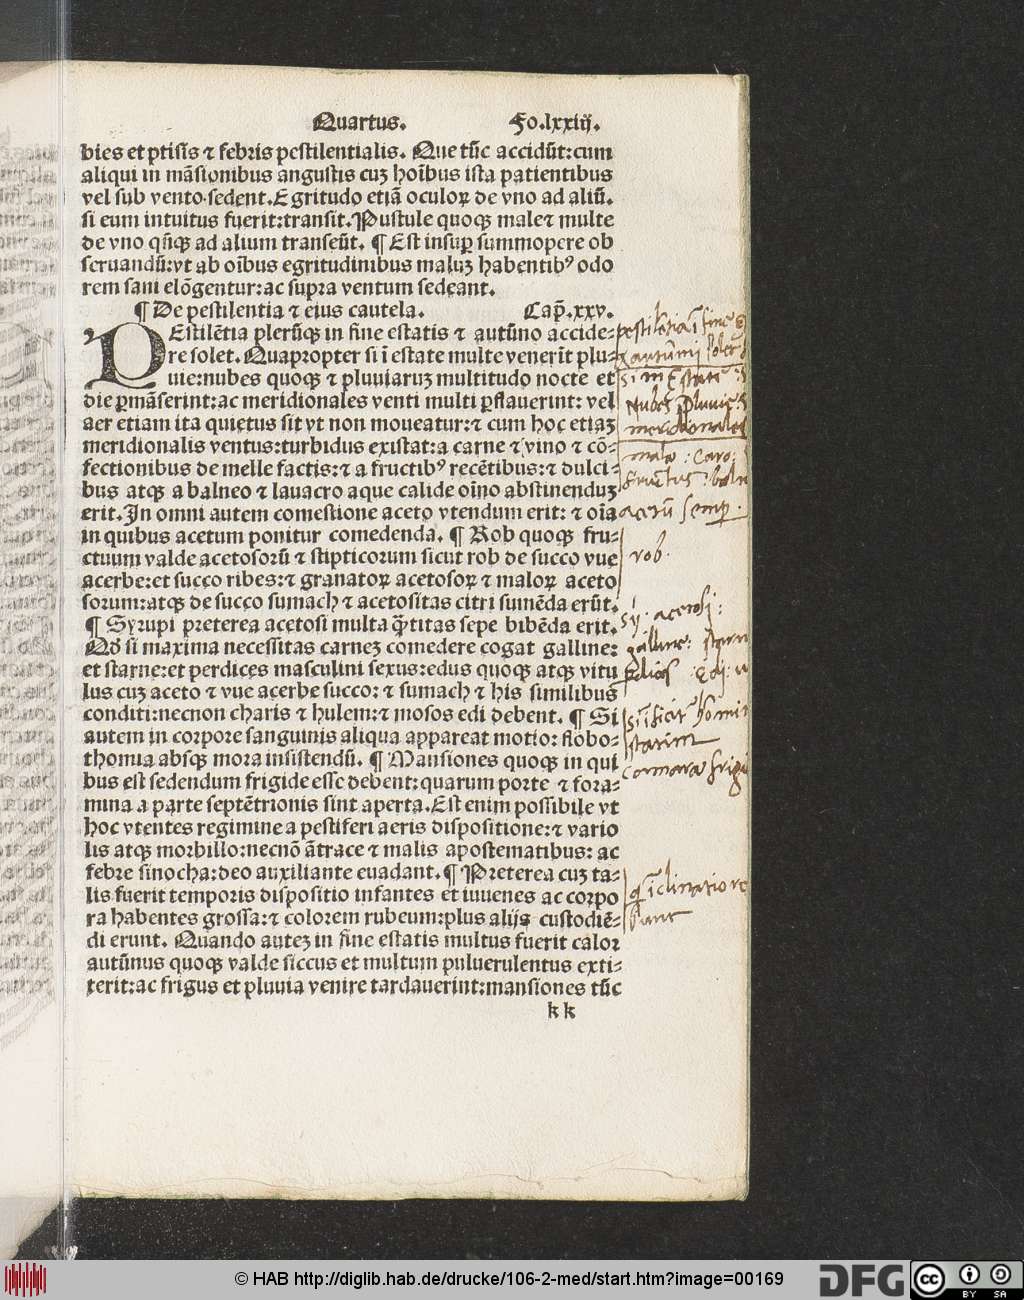 Quartus. Fo.lxxiij.
bies et ptisis ⁊ febris pestilentialis. Que tūc accidūt:cum
aliqui in māsionibus angustis cuꝫ hoībus ista patientibus
vel sub vento sedent. Egritudo etiā oculoꝝ de vno ad aliū.
si eum intuitus fuerit:transit. Pustule quoqꝫ male⁊ multe
de vno qn̄qꝫ ad alium transeūt. ¶ Est insuꝑ summopere ob
seruandū:vt ab oībus egritudinibus maluꝫ habentibꝰ odo
rem sani elōgentur:ac supra ventum sedeant.
¶ De pestilentia ⁊ eius cautela. Cap̄.xxv.
PEstilētia plerūqꝫ in fine estatis ⁊ autūno accide⸗
re solet. Quapropter si ī estate multe venerīt plu⸗
uie:nubes quoqꝫ ⁊ pluuiaruꝫ multitudo nocte et
die ꝑmāserint:ac meridionales venti multi ꝑflauerint: vel
aer etiam ita quietus sit vt non moueatur:⁊ cum hoc etiaꝫ
meridionalis ventus:turbidus existat:a carne ⁊ vino ⁊ cō⸗
fectionibus de melle factis:⁊ a fructibꝰ recētibus:⁊ dulci⸗
bus atqꝫ a balneo ⁊ lauacro aque calide oīno abstinenduꝫ
erit. In omni autem comestione aceto vtendum erit: ⁊ oīa
in quibus acetum ponitur comedenda. ¶ Rob quoqꝫ fru⸗
ctuum valde acetosorū ⁊ stipticorum sicut rob de succo vue
acerbe:et succo ribes:⁊ granatoꝝ acetosoꝝ ⁊ maloꝝ aceto
sorum:atqꝫ de succo sumach ⁊ acetositas citri sumēda erūt.
¶ Syrupi preterea acetosi multa q̄titas sepe bibēda erit.
Nō si maxima necessitas carneꝫ comedere cogat galline:
et starne:et perdices masculini sexus:edus quoqꝫ atqꝫ vitu
lus cuꝫ aceto ⁊ vue acerbe succo: ⁊ sumach ⁊ his similibus
conditi:necnon charis ⁊ hulem:⁊ mosos edi debent. ¶ Si
autem in corpore sanguinis aliqua appareat motio: flobo⸗
thomia absqꝫ mora insistendū. ¶ Mansiones quoqꝫ in qui
bus est sedendum frigide esse debent: quarum porte ⁊ fora⸗
mina a parte septētrionis sint aperta. Est enim possibile vt
hoc vtentes regimine a pestiferi aeris dispositione:⁊ vario
lis atqꝫ morbillo:necnō ātrace ⁊ malis apostematibus: ac
febre sinocha:deo auxiliante euadant. ¶ Preterea cuꝫ ta⸗
lis fuerit temporis dispositio infantes et iuuenes ac corpo
ra habentes grossa:⁊ colorem rubeum:plus alijs custodiē⸗
di erunt. Quando auteꝫ in fine estatis multus fuerit calor
autūnus quoqꝫ valde siccus et multum puluerulentus exti⸗
terit:ac frigus et pluuia venire tardauerint:mansiones tūc
kk
si in Estate
Nubes pluuie
meridionales
mala : Caro:
fructus : baln
acetū semper.
rob.
sy. acetosi:
galline: starn
© HAB http://diglib.hab.de/drucke/106-2-med/start.htm?image=00169
DFG
cc
BY SA